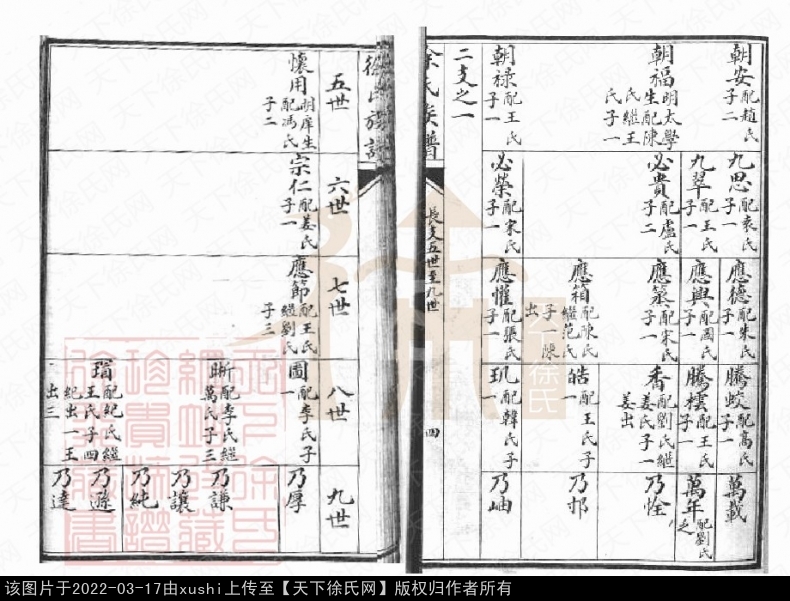 朝安配趙氏子二
朝福明太學生配陳氏繼王氏子一
朝祿配王氏子一
二支之一
九思配袁氏子一
九翠配王氏子一
必貴配盧氏子二
必榮配宋氏子一
應德配朱氏子一
應興配國氏子一
應箓配宋氏子一
應箱配陳氏繼范氏子一陳出
應惟配張氏子一
騰蛟配高氏子一
騰雲配王氏子一
香配劉氏繼姜氏子一姜出
皓配王氏子一
璣配韓氏子一
萬載
萬年配劉氏之
乃恮
乃邦
乃岫
余氏族譜
長支五世至九世
四
徐氏族譜
五世
六世
七世
八世
九世
懷用明庠生配馮氏子二
宗仁配姜氏子一
應節配王氏繼劉氏子三
圖配李氏子一
昕配李氏繼萬氏子三
瑂配紀氏繼王氏子四紀出一王出三
乃厚
乃謙
乃讓
乃純
乃遜
乃達
天下徐氏
该图片于2022-03-17由xushi上传至【天下徐氏网】版权归作者所有